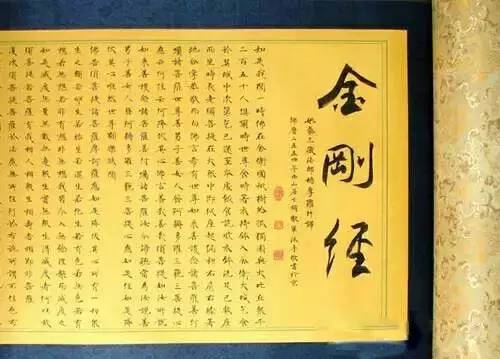 金剛經
姚秦三藏法師鳩摩羅什譯
如是我聞一時佛在舍衛國祇樹給孤獨園與大比丘眾千
二百五十人俱爾時世尊食時著衣持鉢入舍衛大城乞食
於其城中次第乞已還至本處飯食訖收衣鉢洗足已敷座
而坐時長老須菩提在大眾中即從座起偏袒右肩右膝著
地合掌恭敬而白佛言希有世尊如來善護念諸菩薩善付
囑諸菩薩世尊善男子善女人發阿耨多羅三藐三菩提心
應云何住云何降伏其心佛言善哉善哉須菩提如汝所說
如來善護念諸菩薩善付囑諸菩薩汝今諦聽當為汝說善
男子善女人發阿耨多羅三藐三菩提心應如是住如是降
伏其心唯然世尊願樂欲聞
佛告須菩提諸菩薩摩訶薩應如是降伏其心所有一切眾
生之類若卵生若胎生若濕生若化生若有色若無色若有
想若無想若非有想非無想我皆令入無餘涅槃而滅度之
如是滅度無量無數無邊眾生實無眾生得滅度者何以故
須菩提若菩薩有我相人相眾生相壽者相即非菩薩
復次須菩提菩薩於法應無所住行於布施所謂不住色布